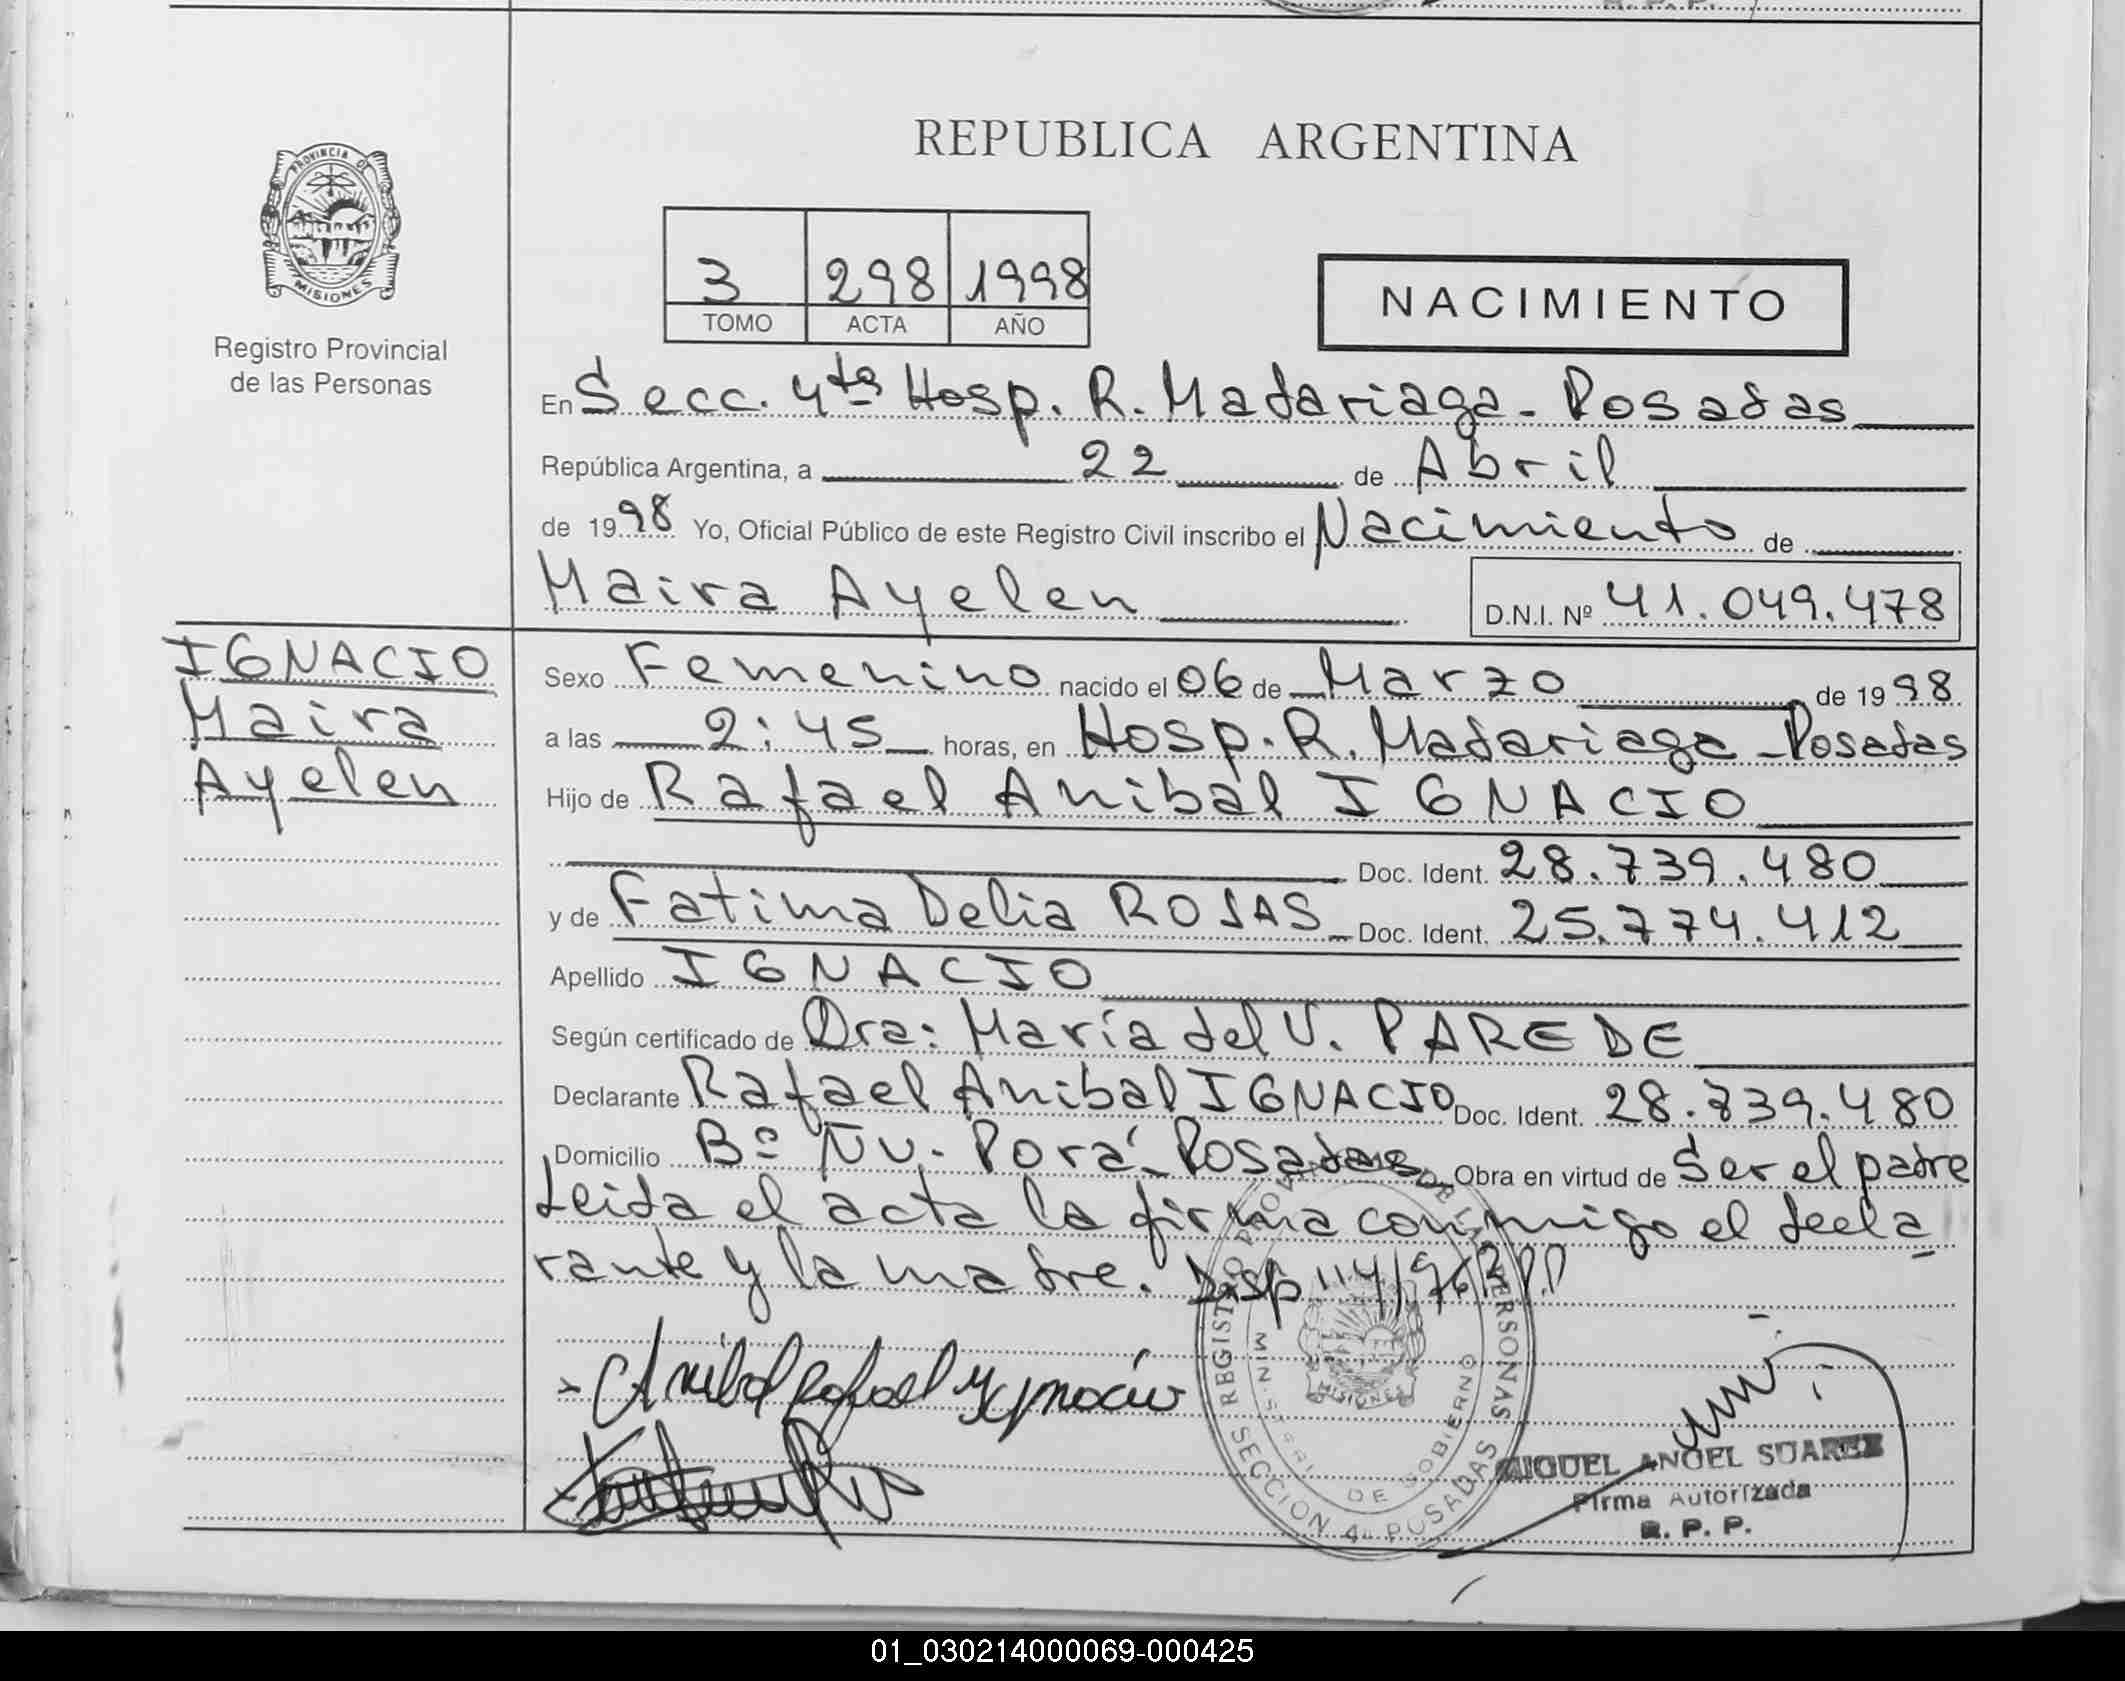 R. P. P.
REPUBLICA ARGENTINA
PROVINCIA DE
MISIONES
Registro Provincial
de las Personas
3 298 1998
TOMO ACTA AÑO
NACIMIENTO
En Secc. 4ta Hosp. R. Madariaga - Posadas
República Argentina, a 22 de Abril
de 1998 Yo, Oficial Público de este Registro Civil inscribo el Nacimiento de
Maira Ayelen D.N.I. Nº 41.049.478
IGNACIO
Maira
Ayelen
Sexo Femenino nacido el 06 de Marzo de 1998
a las 2:45 horas, en Hosp. R. Madariaga - Posadas
Hijo de Rafael Anibal IGNACIO
Doc. Ident. 28.739.480
y de Fatima Delia ROJAS Doc. Ident. 25.774.412
Apellido IGNACIO
Según certificado de Dra: María del V. PAREDE
Declarante Rafael Anibal IGNACIO Doc. Ident. 28.739.480
Domicilio Bº Ñu. Porá - Posadas Obra en virtud de Ser el padre
Leida el acta la firma conmigo el decla
rante y la madre. Disp 114/96
Anibal Rafael Ygnacio
REGISTRO PROVINCIAL DE LAS PERSONAS
MINISTERIO DE GOBIERNO
MISIONES
SECCION 4ta POSADAS
MIGUEL ANGEL SUAREZ
Firma Autorizada
R. P. P.
01_030214000069-000425